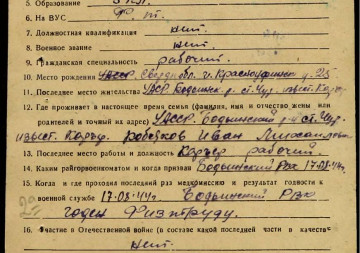 5. Образование
6. На ВУС
7. Должностная квалификация нет
8. Военное звание нет.
9. Гражданская специальность рабочий.
10. Место рождения Свердл обл. г. Красноуфимск
11. Последнее место жительства УАССР Бодьинск р. ст. Чур.
12. Где проживает в настоящее время семья (фамилия, имя и отчество жены или
родителей и точный адрес) УАССР. Бодьинский р-н ст. Чур
извест. Карьер. Иван Михайлович
13. Последнее место работы и должность Карьер рабочий.
14. Каким райгорвоенкоматом и когда призван Бодьинский Рвк 17.08.44г.
15. Когда и где проходил последний раз медкомиссию и результат годности к
военной службе 17.08.44г. Бодьинский РВК
годен Физтруду.
16. Участие в Отечественной войне (в составе какой последней части в качестве
нет.